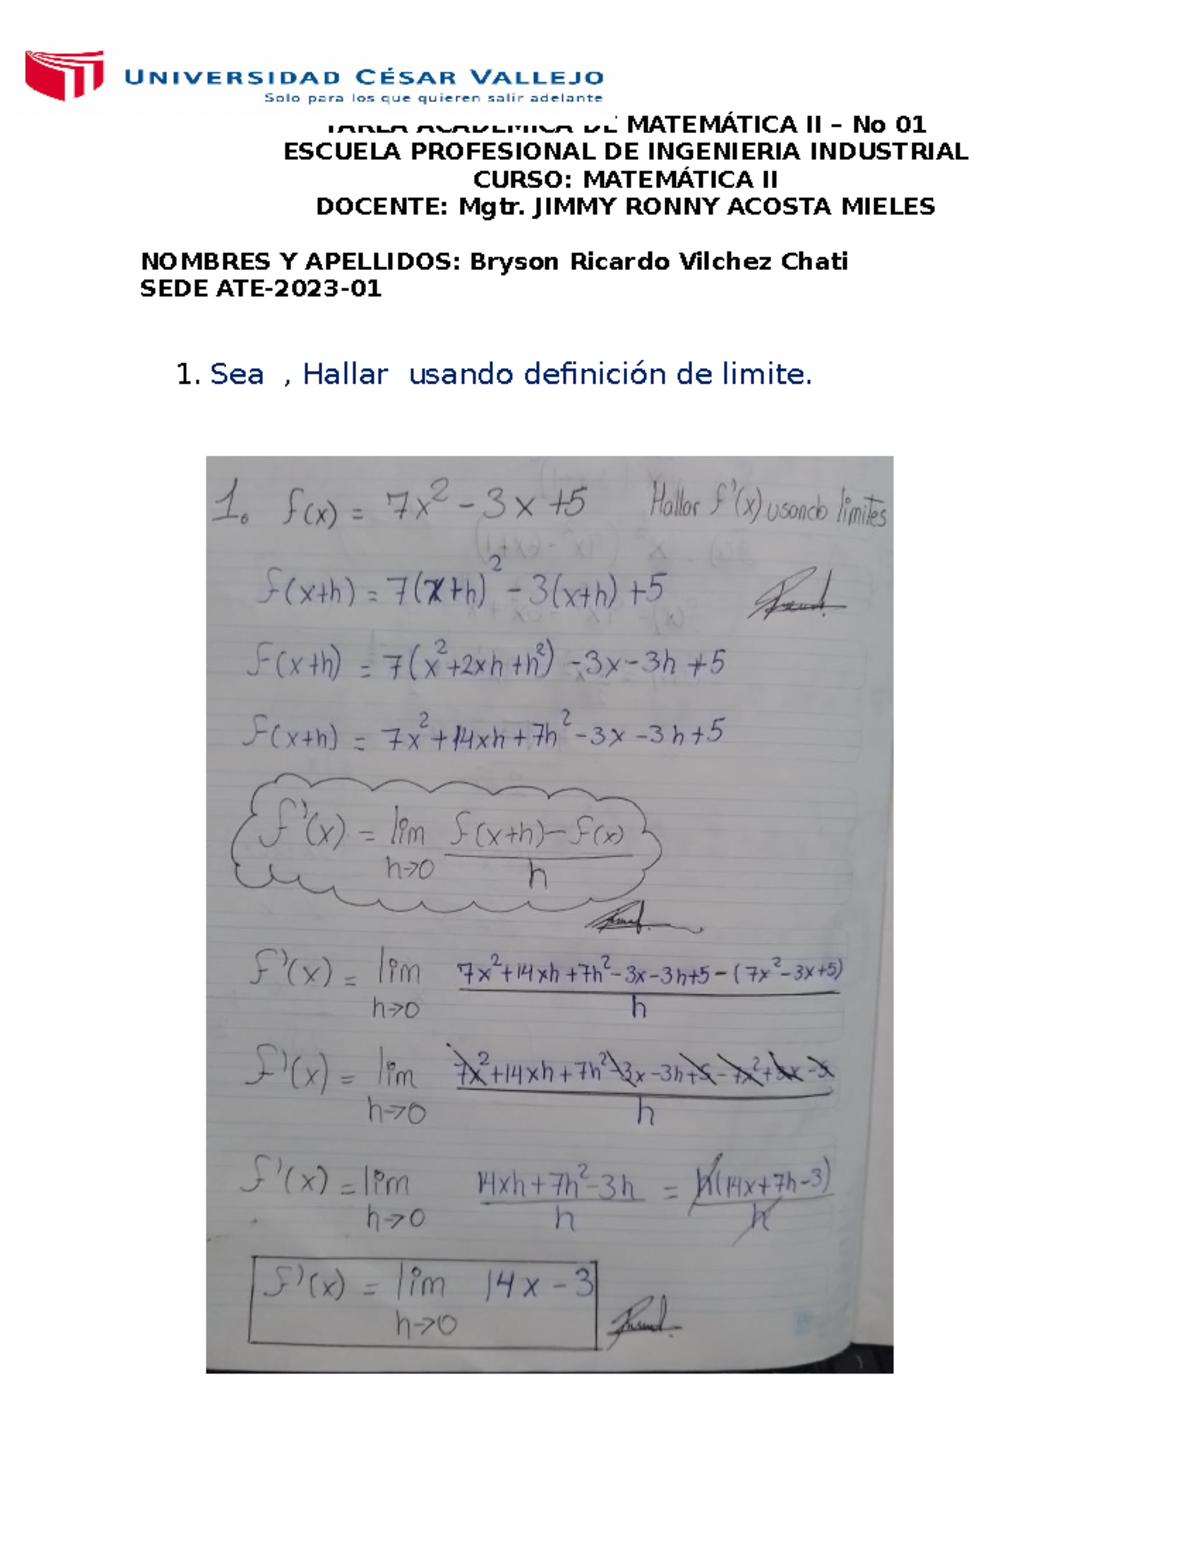 UNIVERSIDAD CÉSAR VALLEJO
Solo para los que quieren salir adelante
TAREA ACADEMICA DE MATEMÁTICA II – No 01
ESCUELA PROFESIONAL DE INGENIERIA INDUSTRIAL
CURSO: MATEMÁTICA II
DOCENTE: Mgtr. JIMMY RONNY ACOSTA MIELES
NOMBRES Y APELLIDOS: Bryson Ricardo Vilchez Chati
SEDE ATE-2023-01
1. Sea , Hallar usando definición de limite.
1. f(x) = 7x² - 3x +5 Hallar f'(x) usando limites
f(x+h) = 7(x+h)² - 3(x+h) +5
f(x+h) = 7(x²+2xh+h²) -3x-3h+5
f(x+h) = 7x²+14xh+7h²-3x-3h+5
f'(x) = lim f(x+h)-f(x)
h→0 h
f'(x) = lim 7x²+14xh+7h²-3x-3h+5-(7x²-3x+5)
h→0 h
f'(x) = lim 7x²+14xh+7h²-3x-3h+5-7x²+3x-5
h→0 h
f'(x) = lim 14xh+7h²-3h = h(14x+7h-3)
h→0 h h
f'(x) = lim 14x-3
h→0